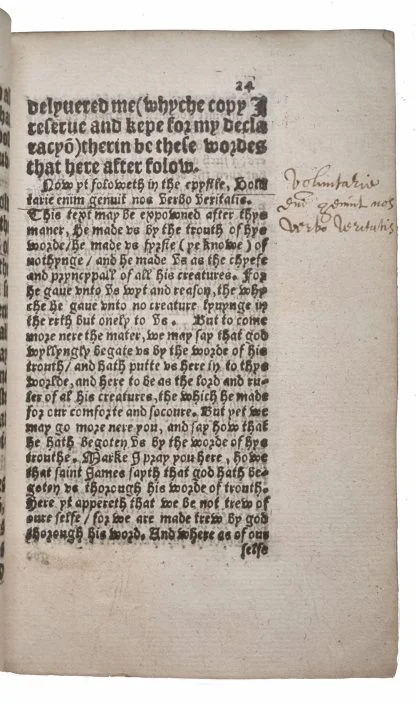 24
delyuered me (whyche copy I
reserue and kepe for my decla
racyõ) therin be these wordes
that here after folow.
Now yt foloweth in the epystle, Volū
tarie enim genuit nos Verbo Veritatis.
This text may be expowned after thys
maner, He made vs by the trouth of hys
worde / he made vs fyrste (ye knowe) of
nothynge / and he made Vs as the chyefe
and pryncypall of all his creatures. For
he gaue vnto Vs wyt and reason, the why
che he gaue vnto no creature lyuynge in
the erth but onely to Vs. But to come
more nere the mater, we may say that god
wyllyngly begate vs by the worde of his
trouth / and hath putte vs here in to thys
worlde, and here to be as the lord and ru-
ler of al his creatures, the which he made
for our comforte and socoure. But yet we
may go more nere you, and say how that
he hath begoten Vs by the worde of hys
trouthe. Marke I pray you here, howe
that saint James sayth that god hath be-
goten vs thorough his worde of trouth.
Here yt appereth that we be not trew of
oure selfe / for we are made trew by god
thorough his word. And where as of our
selfe
Voluntarie
eni genuit nos
verbo veritatis